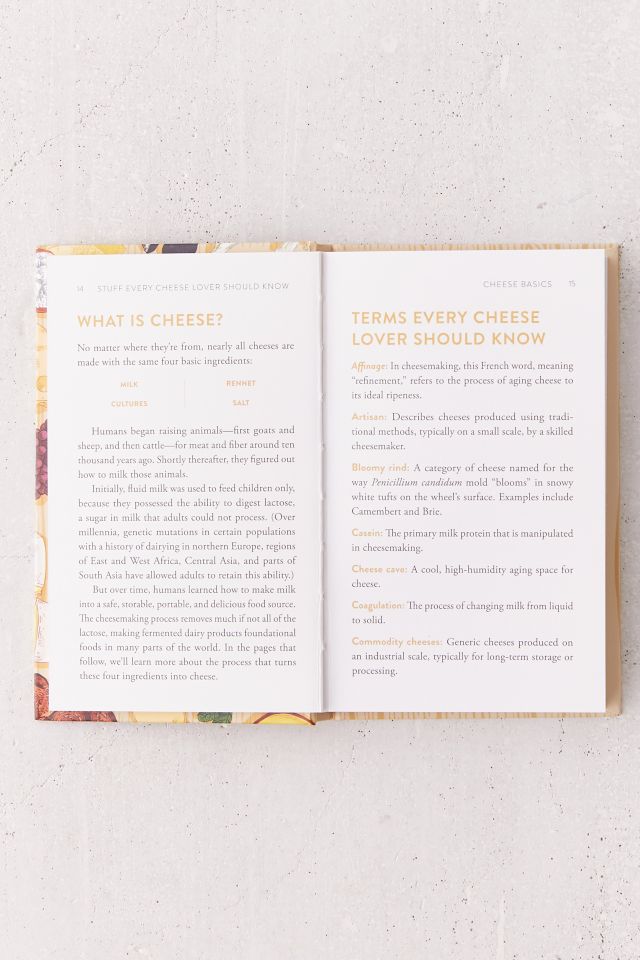 14 STUFF EVERY CHEESE LOVER SHOULD KNOW
WHAT IS CHEESE?
No matter where they're from, nearly all cheeses are
made with the same four basic ingredients:
MILK RENNET
CULTURES SALT
Humans began raising animals—first goats and
sheep, and then cattle—for meat and fiber around ten
thousand years ago. Shortly thereafter, they figured out
how to milk those animals.
Initially, fluid milk was used to feed children only,
because they possessed the ability to digest lactose,
a sugar in milk that adults could not process. (Over
millennia, genetic mutations in certain populations
with a history of dairying in northern Europe, regions
of East and West Africa, Central Asia, and parts of
South Asia have allowed adults to retain this ability.)
But over time, humans learned how to make milk
into a safe, storable, portable, and delicious food source.
The cheesemaking process removes much if not all of the
lactose, making fermented dairy products foundational
foods in many parts of the world. In the pages that
follow, we'll learn more about the process that turns
these four ingredients into cheese.
CHEESE BASICS 15
TERMS EVERY CHEESE
LOVER SHOULD KNOW
Affinage: In cheesemaking, this French word, meaning
"refinement," refers to the process of aging cheese to
its ideal ripeness.
Artisan: Describes cheeses produced using tradi-
tional methods, typically on a small scale, by a skilled
cheesemaker.
Bloomy rind: A category of cheese named for the
way Penicillium candidum mold "blooms" in snowy
white tufts on the wheel's surface. Examples include
Camembert and Brie.
Casein: The primary milk protein that is manipulated
in cheesemaking.
Cheese cave: A cool, high-humidity aging space for
cheese.
Coagulation: The process of changing milk from liquid
to solid.
Commodity cheeses: Generic cheeses produced on
an industrial scale, typically for long-term storage or
processing.